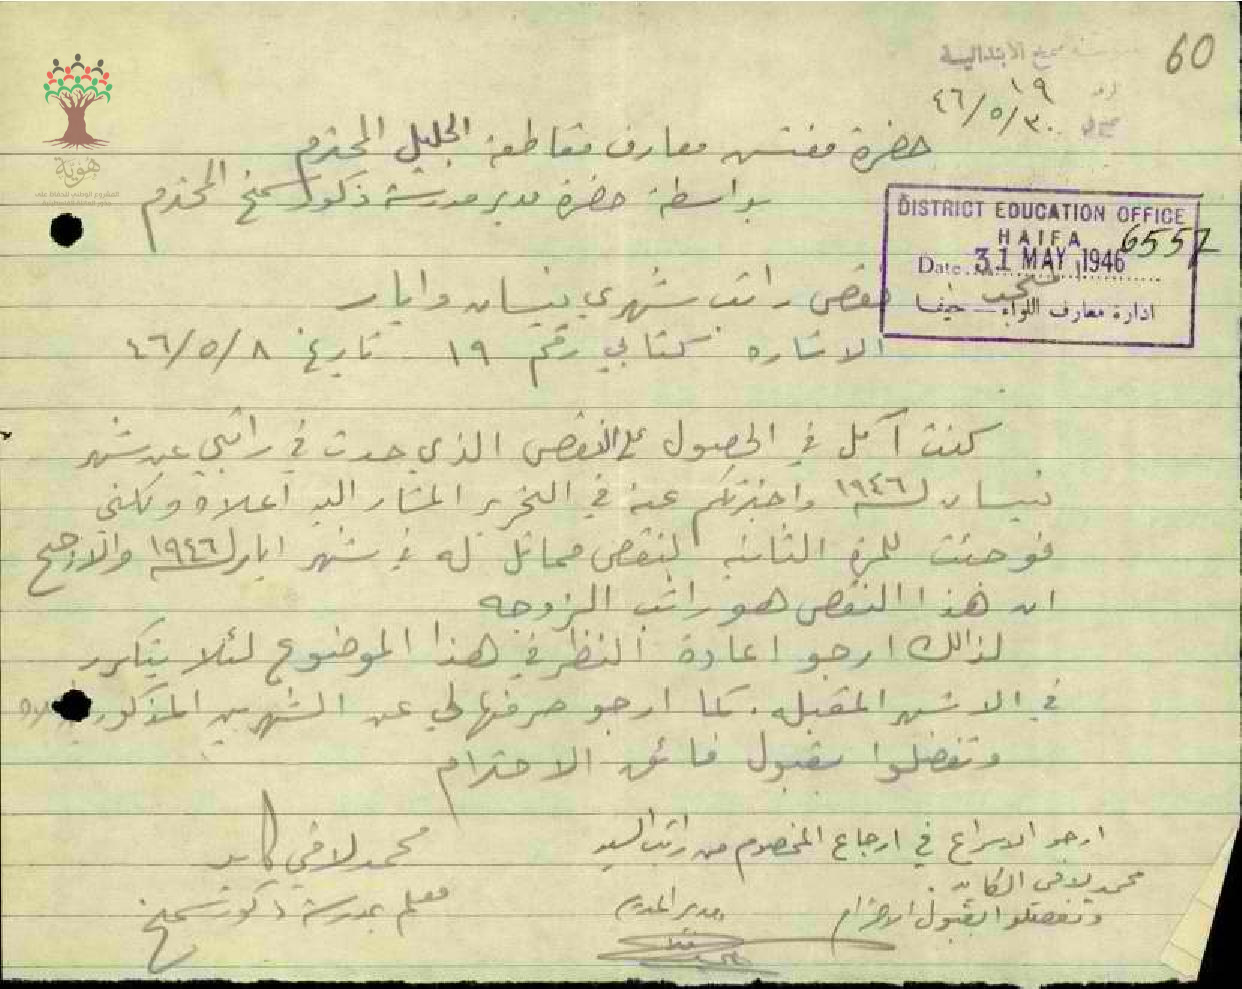 60
الابتدائية
١٩
٤٦/٥/٣٠
حضرة مفتش معارف مقاطعة الجليل المحترم
بواسطة حضرة مدير مدرسة ذكور سمخ المحترم
هوية
المشروع الوطني للحفاظ على
DISTRICT EDUCATION OFFICE
HAIFA
6557
Date 31 MAY 1946
ادارة معارف اللواء — حيفا
نقص راتب شهري نيسان وايار
الاشاره كتابي رقم ١٩ تاريخ ٤٦/٥/٨
كنت آمل في الحصول على النقص الذي حدث في راتبي عن شهر
نيسان لسنة ١٩٤٦ واخبرتكم عنه في التحرير المشار اليه اعلاه ولكني
فوجئت للمرة الثانية لنقص مماثل له في شهر ايار لسنة ١٩٤٦ والارجح
ان هذا النقص هو راتب الزوجه
لذالك ارجو اعادة النظر في هذا الموضوع لئلا يتكرر
في الاشهر المقبله. كما ارجو صرفها لي عن الشهرين المذكورين اعلاه
وتفضلوا بقبول فائق الاحترام
محمد لافي كايد
معلم بمدرسة ذكور سمخ
ارجو الاسراع في ارجاع المخصوم من راتب السيد
محمد لافي الكايد
وتفضلوا بقبول الاحترام
مدير المدرسة